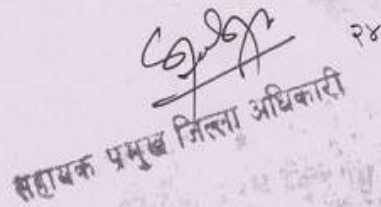 २४
सहायक प्रमुख जिल्ला अधिकारी